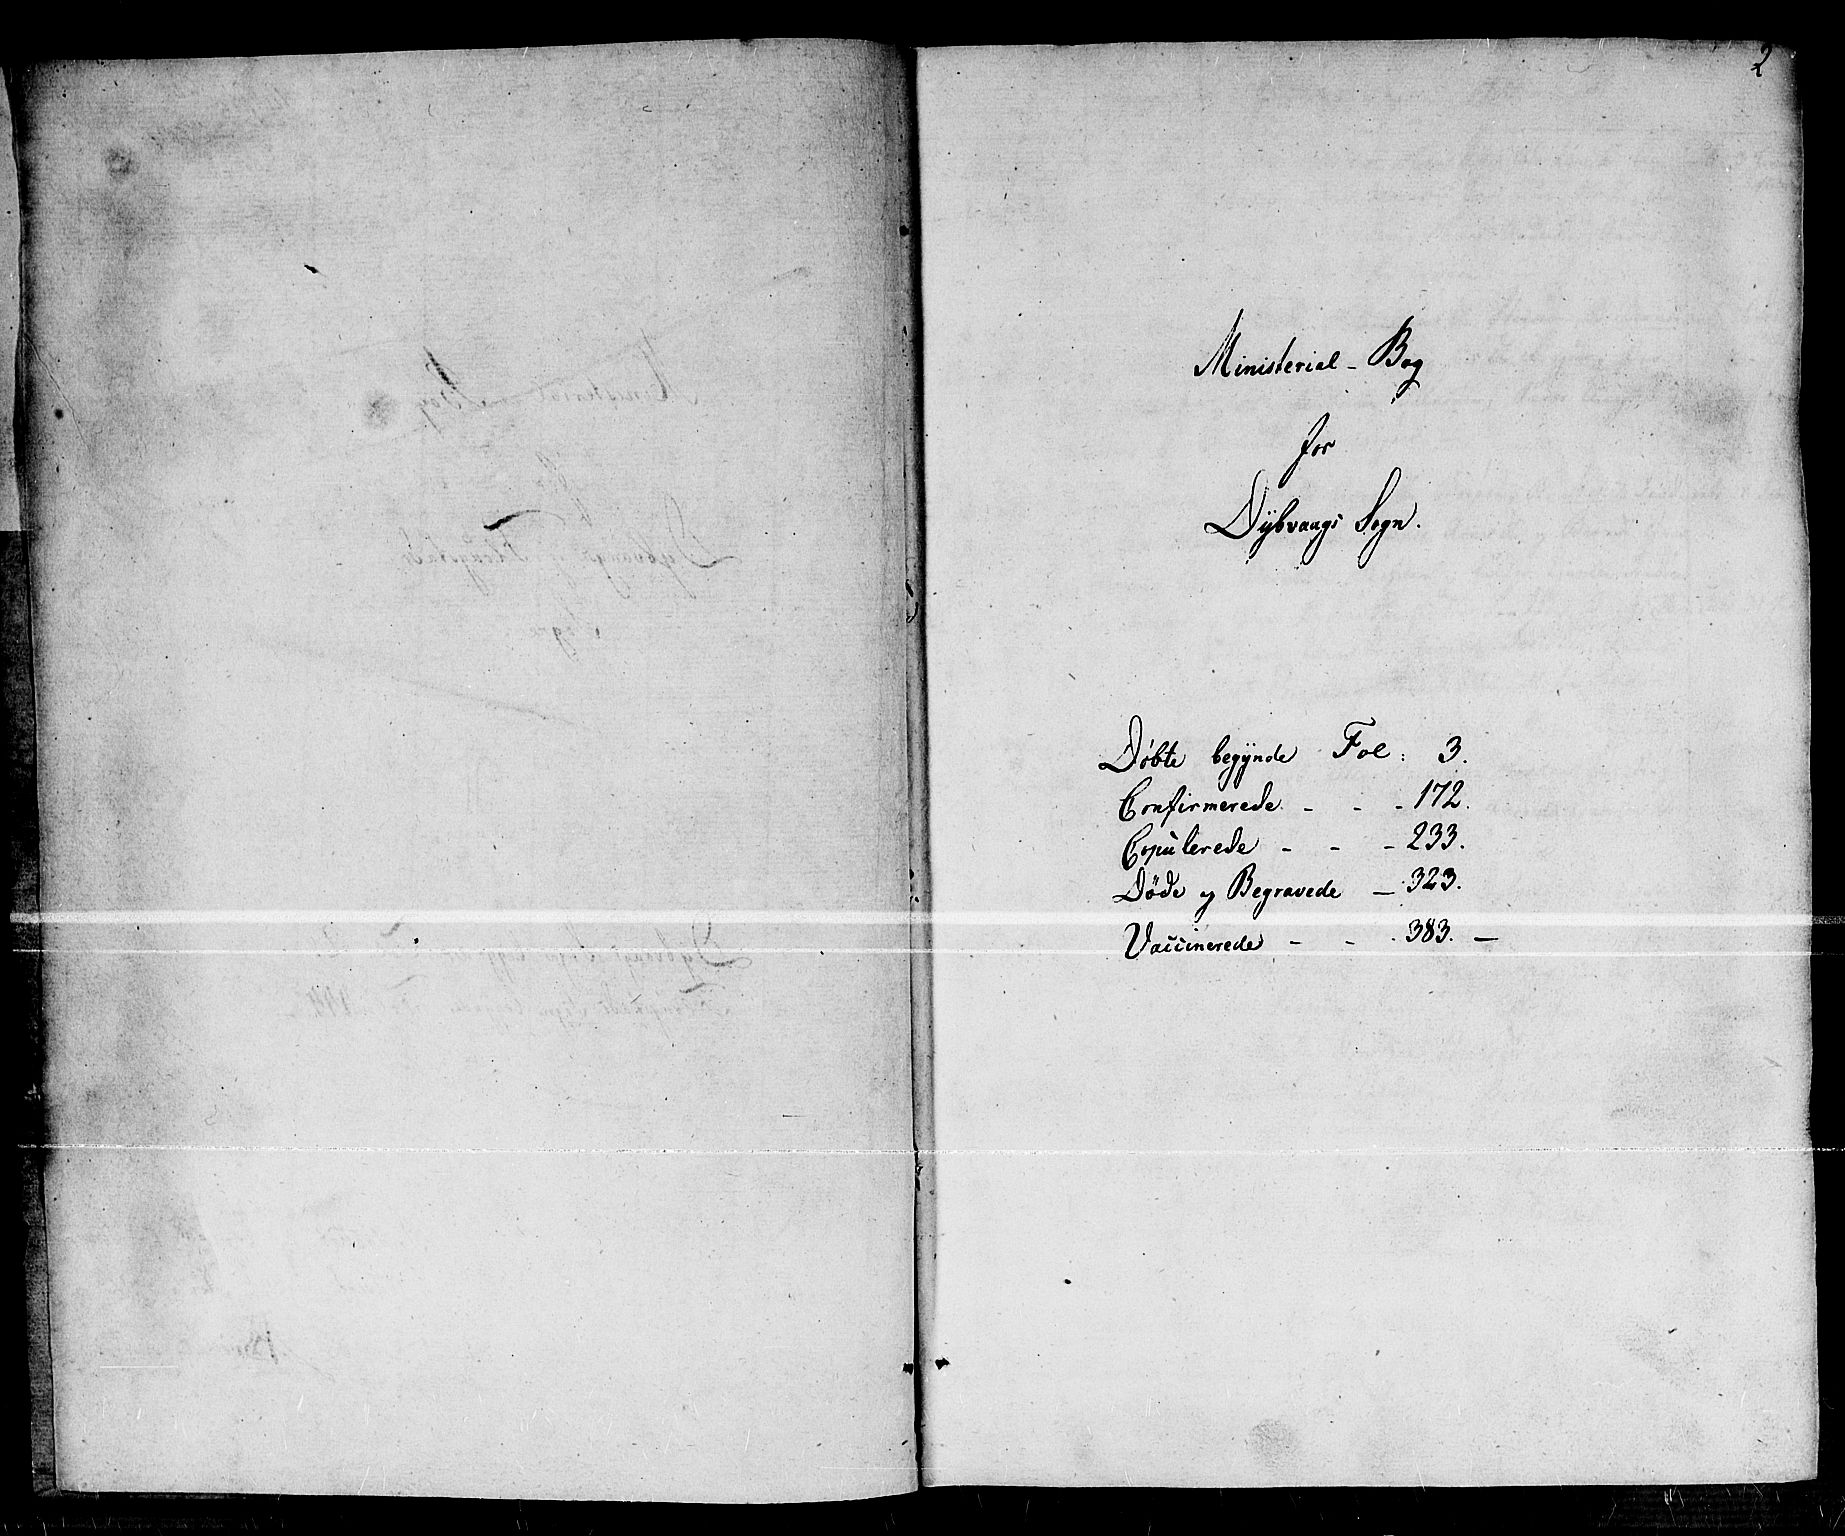 2
Ministerial - Bog
for
Dÿbvaags Sogn.
Døbte begÿnde Fol: 3.
Confirmerede - - - 172.
Copulerede - - - 233.
Døde og Begravede - 323.
Vaccinerede - - - 383. -